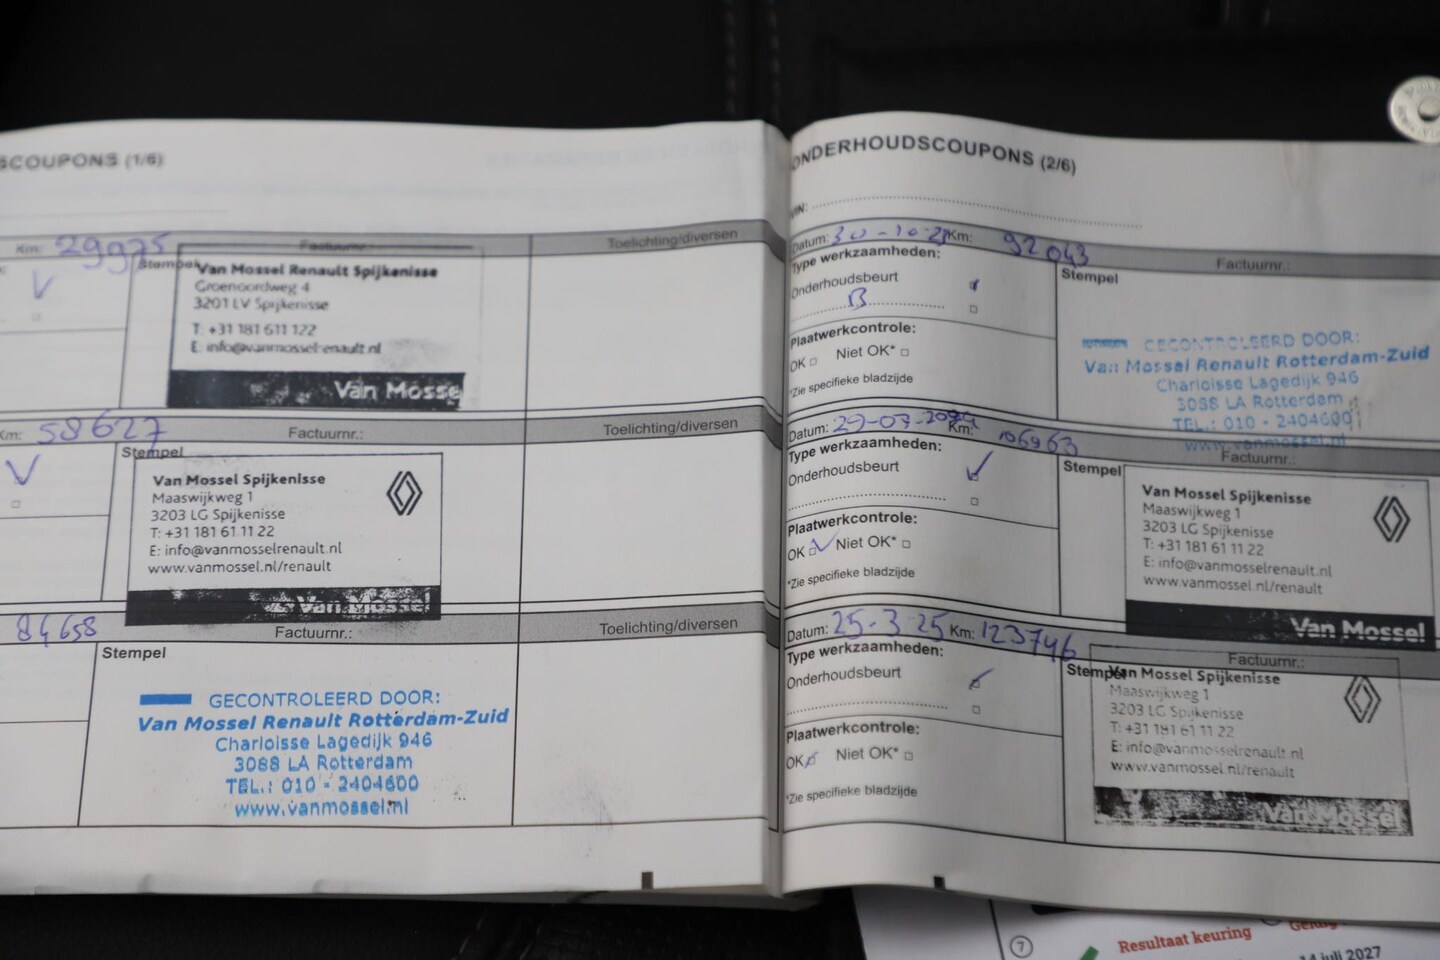 SCOUPONS (1/6)
Km: 29975
Factuurnr.:
Toelichting/diversen
Stempel
Van Mossel Renault Spijkenisse
Groenoordweg 4
3201 LV Spijkenisse
T: +31 181 611 122
E: info@vanmosselrenault.nl
Van Mossel
Km: 58627
Factuurnr.:
Toelichting/diversen
Stempel
Van Mossel Spijkenisse
Maaswijkweg 1
3203 LG Spijkenisse
T: +31 181 61 11 22
E: info@vanmosselrenault.nl
www.vanmossel.nl/renault
Van Mossel
84658
Factuurnr.:
Toelichting/diversen
Stempel
GECONTROLEERD DOOR:
Van Mossel Renault Rotterdam-Zuid
Charloisse Lagedijk 946
3088 LA Rotterdam
TEL.: 010 - 2404600
www.vanmossel.nl
ONDERHOUDSCOUPONS (2/6)
VIN:
Datum: 30-10-2 Km: 92043
Factuurnr.:
Type werkzaamheden:
Stempel
Onderhoudsbeurt
B
Plaatwerkcontrole:
OK Niet OK*
*Zie specifieke bladzijde
GECONTROLEERD DOOR:
Van Mossel Renault Rotterdam-Zuid
Charloisse Lagedijk 946
3088 LA Rotterdam
TEL.: 010 - 2404600
www.vanmossel.nl
Datum: 29-07-2024 Km: 106963
Factuurnr.:
Type werkzaamheden:
Stempel
Onderhoudsbeurt
Plaatwerkcontrole:
OK Niet OK*
*Zie specifieke bladzijde
Van Mossel Spijkenisse
Maaswijkweg 1
3203 LG Spijkenisse
T: +31 181 61 11 22
E: info@vanmosselrenault.nl
www.vanmossel.nl/renault
Van Mossel
Datum: 25-3-25 Km: 123746
Factuurnr.:
Type werkzaamheden:
Stempel
Onderhoudsbeurt
Plaatwerkcontrole:
OK Niet OK*
*Zie specifieke bladzijde
Van Mossel Spijkenisse
Maaswijkweg 1
3203 LG Spijkenisse
T: +31 181 61 11 22
E: info@vanmosselrenault.nl
www.vanmossel.nl/renault
Van Mossel
7
Resultaat keuring
14 juli 2027